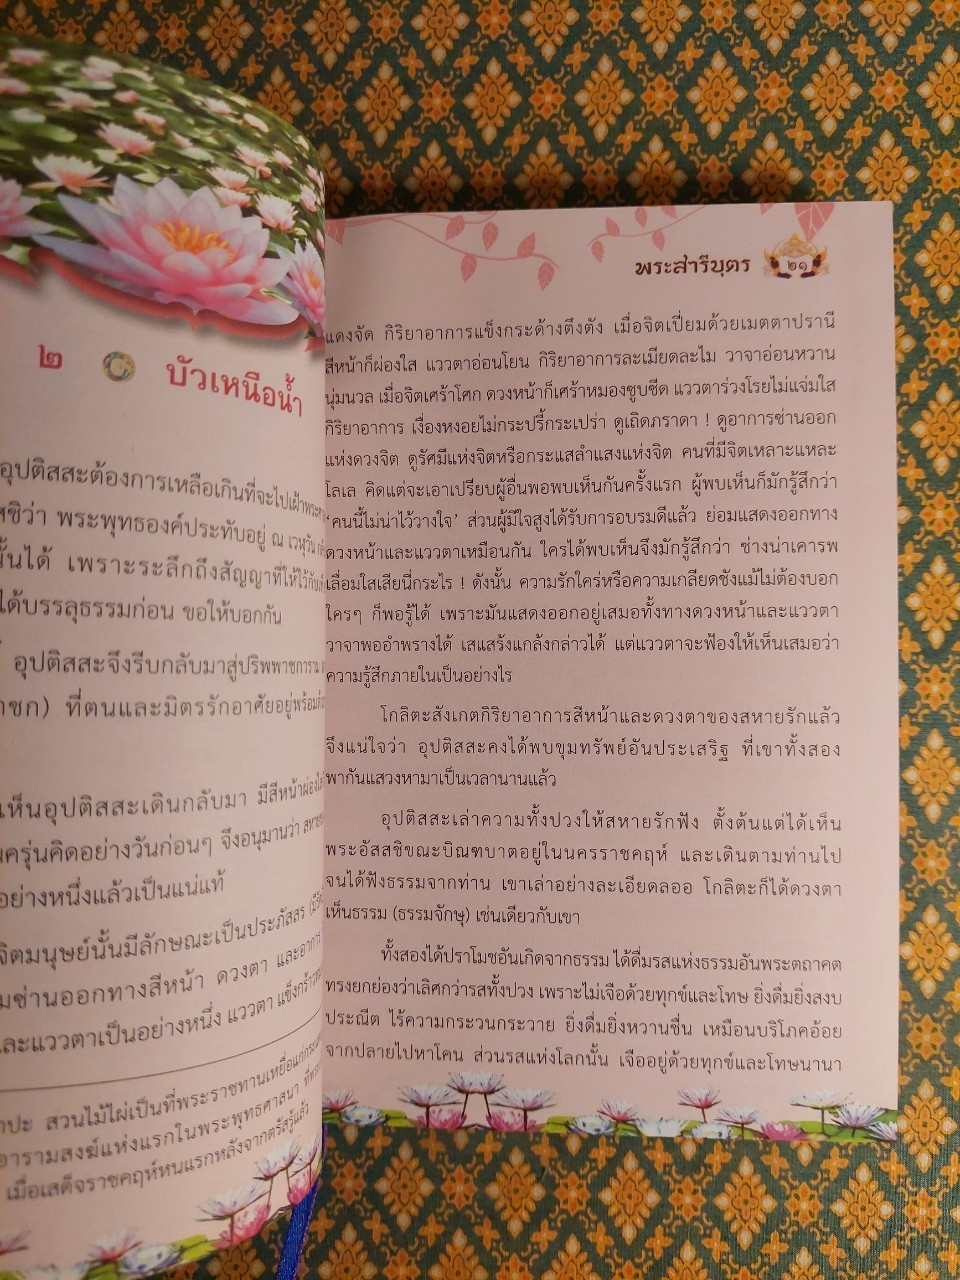 ๒ บัวเหนือน้ำ
อุปติสสะต้องการเหลือเกินที่จะไปเฝ้าพระศา
สชิว่า พระพุทธองค์ประทับอยู่ ณ เวฬุวัน
นั้นได้ เพราะระลึกถึงสัญญาที่ให้ไว้กับ
ได้บรรลุธรรมก่อน ขอให้บอกกัน
อุปติสสะจึงรีบกลับมาสู่ปริพพาชการาม
าชก) ที่ตนและมิตรรักอาศัยอยู่พร้อมด้วย
เห็นอุปติสสะเดินกลับมา มีสีหน้าผ่องใส
นครุ่นคิดอย่างวันก่อนๆ จึงอนุมานว่า สหาย
อย่างหนึ่งแล้วเป็นแน่แท้
จิตมนุษย์นั้นมีลักษณะเป็นประภัสสร
มซ่านออกทางสีหน้า ดวงตา และอาการ
และแววตาเป็นอย่างหนึ่ง แววตา แข็งกร้าว
าปะ สวนไม้ไผ่เป็นที่พระราชทานเหยื่อแก่กระแต
อารามสงฆ์แห่งแรกในพระพุทธศาสนา ที่พระ
เมื่อเสด็จราชคฤห์หนแรกหลังจากตรัสรู้แล้ว
พระสารีบุตร ๒๑
แดงจัด กิริยาอาการแข็งกระด้างตึงตัง เมื่อจิตเปี่ยมด้วยเมตตาปรานี
สีหน้าก็ผ่องใส แววตาอ่อนโยน กิริยาอาการละเมียดละไม วาจาอ่อนหวาน
นุ่มนวล เมื่อจิตเศร้าโศก ดวงหน้าก็เศร้าหมองซูบซีด แววตาร่วงโรยไม่แจ่มใส
กิริยาอาการ เงื่องหงอยไม่กระปรี้กระเปร่า ดูเถิดภราดา ! ดูอาการซ่านออก
แห่งดวงจิต ดูรัศมีแห่งจิตหรือกระแสลำแสงแห่งจิต คนที่มีจิตเหลาะแหละ
โลเล คิดแต่จะเอาเปรียบผู้อื่นพอพบเห็นกันครั้งแรก ผู้พบเห็นก็มักรู้สึกว่า
‘คนนี้ไม่น่าไว้วางใจ’ ส่วนผู้มีใจสูงได้รับการอบรมดีแล้ว ย่อมแสดงออกทาง
ดวงหน้าและแววตาเหมือนกัน ใครได้พบเห็นจึงมักรู้สึกว่า ช่างน่าเคารพ
เลื่อมใสเสียนี่กระไร ! ดังนั้น ความรักใคร่หรือความเกลียดชังแม้ไม่ต้องบอก
ใครๆ ก็พอรู้ได้ เพราะมันแสดงออกอยู่เสมอทั้งทางดวงหน้าและแววตา
วาจาพออำพรางได้ เสแสร้งแกล้งกล่าวได้ แต่แววตาจะฟ้องให้เห็นเสมอว่า
ความรู้สึกภายในเป็นอย่างไร
โกลิตะสังเกตกิริยาอาการสีหน้าและดวงตาของสหายรักแล้ว
จึงแน่ใจว่า อุปติสสะคงได้พบขุมทรัพย์อันประเสริฐ ที่เขาทั้งสอง
พากันแสวงหามาเป็นเวลานานแล้ว
อุปติสสะเล่าความทั้งปวงให้สหายรักฟัง ตั้งต้นแต่ได้เห็น
พระอัสสชิขณะบิณฑบาตอยู่ในนครราชคฤห์ และเดินตามท่านไป
จนได้ฟังธรรมจากท่าน เขาเล่าอย่างละเอียดลออ โกลิตะก็ได้ดวงตา
เห็นธรรม (ธรรมจักษุ) เช่นเดียวกับเขา
ทั้งสองได้ปราโมชอันเกิดจากธรรม ได้ดื่มรสแห่งธรรมอันพระตถาคต
ทรงยกย่องว่าเลิศกว่ารสทั้งปวง เพราะไม่เจือด้วยทุกข์และโทษ ยิ่งดื่มยิ่งสงบ
ประณีต ไร้ความกระวนกระวาย ยิ่งดื่มยิ่งหวานชื่น เหมือนบริโภคอ้อย
จากปลายไปหาโคน ส่วนรสแห่งโลกนั้น เจืออยู่ด้วยทุกข์และโทษนานา